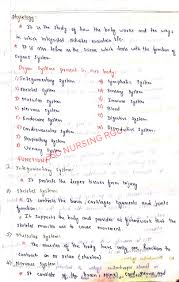 Physiology
* It is the study of how the body works and the ways
in which integrated
* It is also define as the science which deals with the function of
organs system
Organ Systems present in our body
1) Integumentary System
2) Skeletal System
3) Muscular System
4) Nervous System
5) Endocrine System
6) Cardiovascular System
7) Respiratory System
8) Urinary System
9) Lymphatic System
10) Sensory System
11) Immune System
12) Blood
13) Digestive System
14) Reproductive System
NURSING
FUNCTIONS
1) Integumentary System
* It protects the deeper tissues from injury
2) Skeletal System
* It contains the bones, cartilages ligaments and joints
function
* It supports the body and provides a framework that the
skeletal muscles use to cause movement.
3) Muscular System
* The muscles of the body have only one function to
contract or to relax
4) Nervous System
* It consists of the brain, spinal cord, nerves and